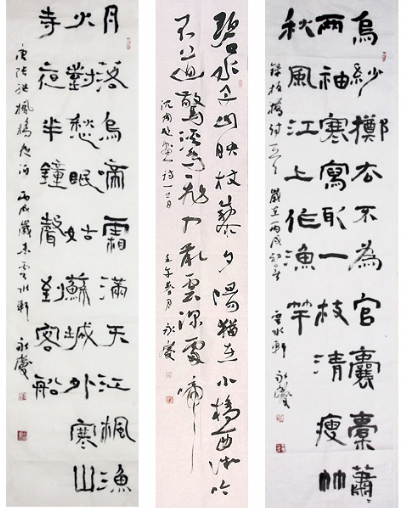 烏紗擲去不為官囊橐蕭
〻兩袖寒寫取一枝清瘦竹
秋風江上作漁竿
鄭板橋詩一首 歲在丙戌 雲水軒 永慶
碧水丹山映杖藜夕陽猶在小橋西微吟
不道驚溪鳥飛入亂雲深處啼
沈周題畫詩一首 壬午春月 永慶
月落烏啼霜滿天江楓漁
火對愁眠姑蘇城外寒山
寺夜半鐘聲到客船
唐張繼楓橋夜泊 丙戌歲末雲水軒 永慶